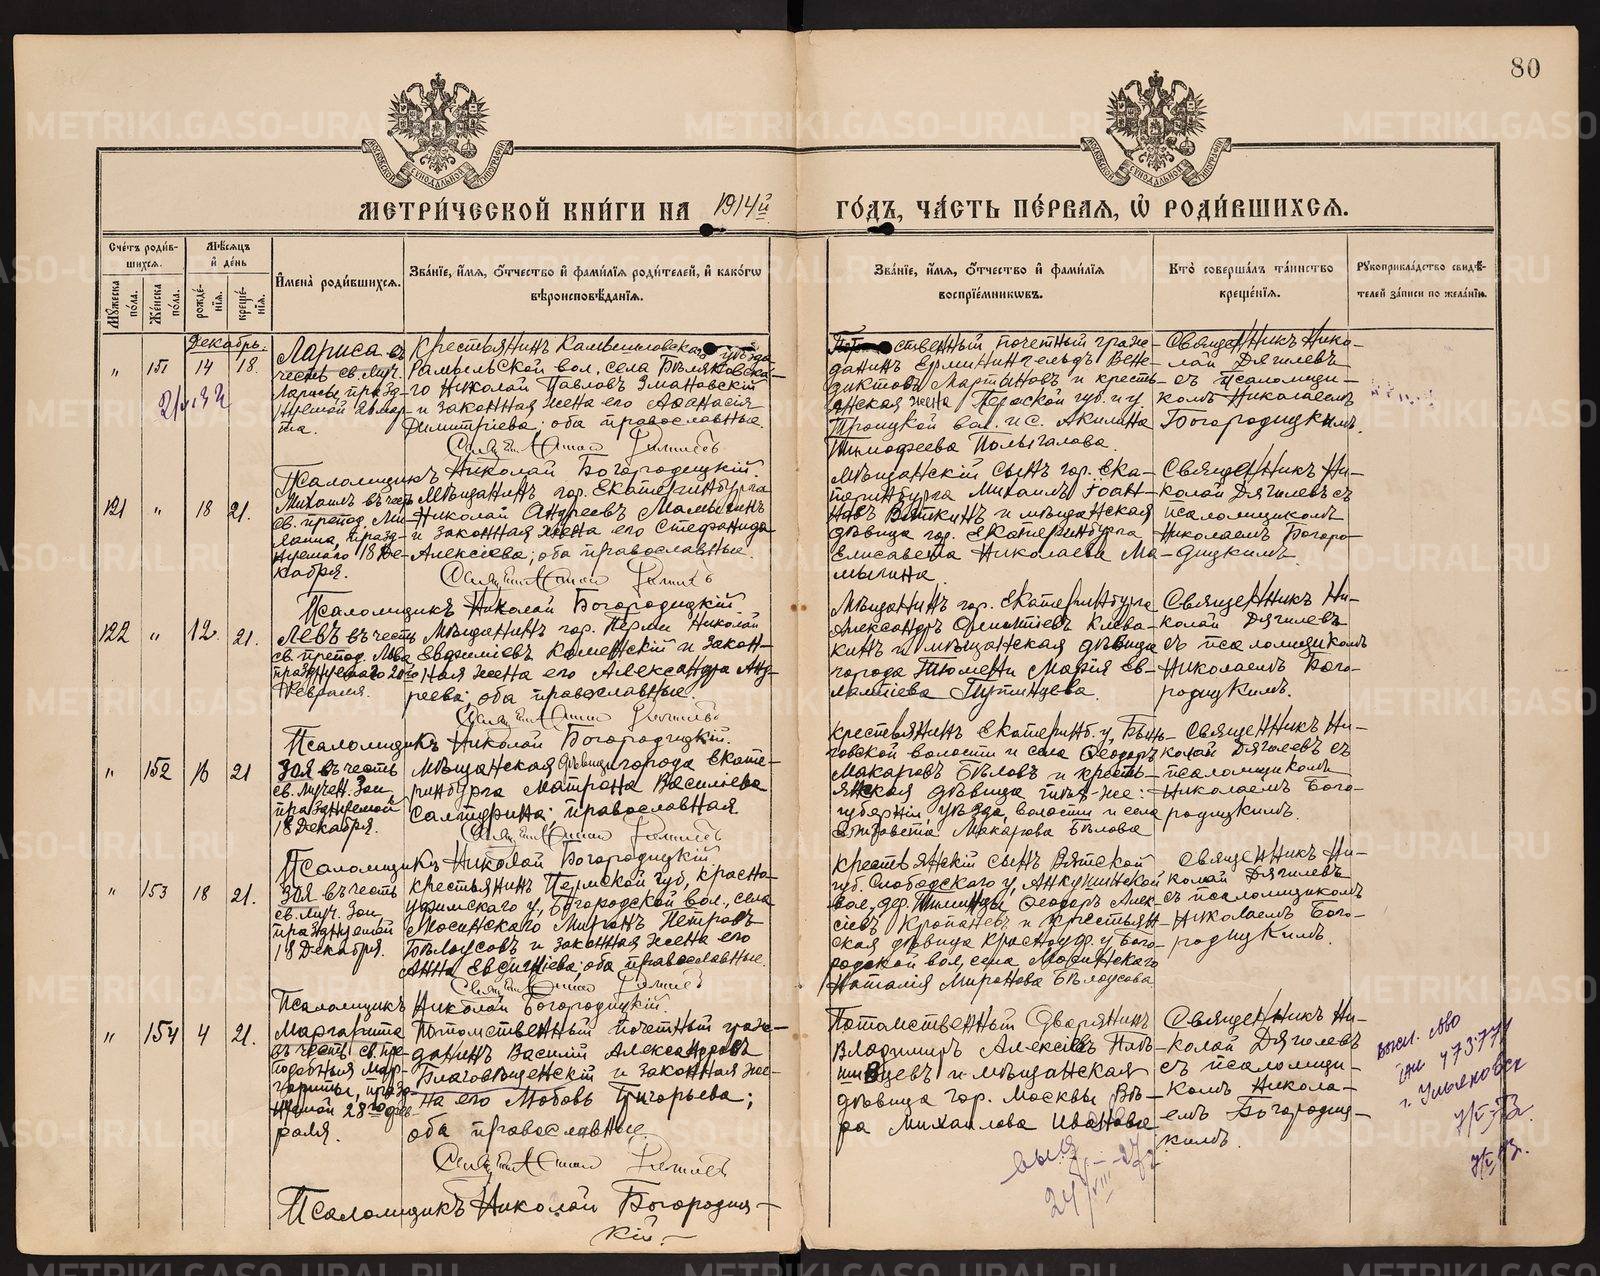 80
МЕТРИ́ЧЕСКОЙ КНИ́ГИ НА 1914й ГО́ДЪ, ЧА́СТЬ ПЕ́РВАЯ, Ѿ РОДИ́ВШИХСЯ.
Сче́тъ роди́в-
шихся.
Мѣ́сяцъ
и҆ де́нь
Мꙋ́жеска по́ла.
Же́нска по́ла.
рожде́-
нїя.
креще́-
нїя.
И҆мена̀ роди́вшихся.
Зва́нїе, и҆́мя, ѻ҆́тчество и҆ фами́лїя роди́телей, и҆ како́гѡ
вѣроисповѣ́данїя.
Зва́нїе, и҆́мя, ѻ҆́тчество и҆ фами́лїя
воспрїе́мникѡвъ.
Кто̀ соверша́лъ та́инство
креще́нїя.
Рꙋкоприкла́дство свидѣ́-
телей за́писи по жела́нїю.
Декабрь.
„ 151 14 18.
Лариса въ
честь св. муч.
Ларисы празд-
нуемой 26 мар-
та.
Крестьянинъ Камышловскаго уѣзда
Рамыльской вол. села Бѣляковска-
го Николай Павловъ Эмановскій
и законная жена его Аѳанасія
Димитріева; оба православные.
Псаломщикъ Николай Богородицкій.
ственный почетный граж-
данинъ Ерминингельдъ Вене-
диктовъ Мартыновъ и кресть-
янская жена Пермской губ. и у.
Троицкой вол. и с. Акилина
Тимофеева Полыгалова.
Священникъ Нико-
лай Дягилевъ
съ псаломщи-
комъ Николаемъ
Богородицкимъ.
121 „ 18 21.
Михаилъ въ честь
св. препод. Ми-
хаила, празд-
нуемаго 18 Де-
кабря.
Мѣщанинъ гор. Екатеринбурга
Николай Андреевъ Мамыгинъ
и законная жена его Стефанида
Алексіева; оба православные.
Псаломщикъ Николай Богородицкій.
Мѣщанскій сынъ гор. Ека-
теринбурга Михаилъ Іоан-
новъ Вяткинъ и мѣщанская
дѣвица гор. Екатеринбурга
Елисавета Николаева Ма-
мыгина.
Священникъ Ни-
колай Дягилевъ съ
псаломщикомъ
Николаемъ Богоро-
дицкимъ.
122 „ 12 21.
Левъ въ честь
св. препод. Льва
празднуемаго 20го
Февраля.
Мѣщанинъ гор. Перми Николай
Евфиміевъ Каменскій и закон-
ная жена его Александра Анд-
реева; оба православные.
Псаломщикъ Николай Богородицкій.
Мѣщанинъ гор. Екатеринбурга
Александръ
кинъ и мѣщанская дѣвица
города Тюмени Марія Ев-
лампіева
Священникъ Ни-
колай Дягилевъ
съ псаломщикомъ
Николаемъ Бого-
родицкимъ.
„ 152 16 21
Зоя въ честь
св. мучен. Зои
празднуемой
18 Декабря.
Мѣщанская дѣвица города Екате-
ринбурга Матрона Василіева
православная
Псаломщикъ Николай Богородицкій.
Крестьянинъ Екатеринб. у. Бын-
говской волости и села Ѳеодоръ
Макаровъ Бѣловъ и кресть-
янская дѣвица тѣхъ-же:
губерніи, уѣзда, волости и села
Елизавета Макарова Бѣлова
Священникъ Ни-
колай Дягилевъ съ
псаломщикомъ
Николаемъ Бого-
родицкимъ.
„ 153 18 21.
Зоя въ честь
св. муч. Зои,
празднуемой
18 Декабря.
Крестьянинъ Пермской губ, Красно-
уфимскаго у, Богородской вол., села
Мосинскаго Миронъ Петровъ
Бѣлоусовъ и законная жена его
Анна Евсигніева; оба православные.
Псаломщикъ Николай Богородицкій.
Крестьянскій сынъ Вятской
губ. Слободскаго у,
вол, дер. Ѳеодоръ Алек-
сіевъ Кропаневъ и крестьян-
ская дѣвица Красноуф. у. Бого-
родской вол, села Мосинскаго
Наталія Миронова Бѣлоусова
Священникъ Ни-
колай Дягилевъ
съ псаломщикомъ
Николаемъ Бого-
родицкимъ.
„ 154 4 21.
Маргарита
въ честь св. пре-
подобныя Мар-
гариты, празд-
нуемой 28го фев-
раля.
Потомственный почетный граж-
данинъ Василій Александровъ
Благовѣщенскій и законная же-
на его Любовь Григорьева;
оба православные.
Псаломщикъ Николай Богородиц-
кій.
Потомственный Дворянинъ
Владимиръ Алексіевъ
и мѣщанская
дѣвица гор. Москвы Вѣ-
ра Михаилова Иванова
Священникъ Ни-
колай Дягилевъ
съ псаломщи-
комъ Никола-
емъ Богородиц-
кимъ.